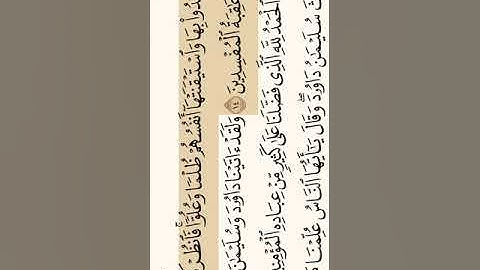 بِهَا وَٱسْتَيْقَنَتْهَآ أَنفُسُهُمْ ظُلْمًا وَعُلُوًّا ۚ فَٱنظُرْ
عَٰقِبَةُ ٱلْمُفْسِدِينَ ١٤ وَلَقَدْ ءَاتَيْنَا دَاوُۥدَ وَسُلَيْمَٰنَ
ٱلْحَمْدُ لِلَّهِ ٱلَّذِى فَضَّلَنَا عَلَىٰ كَثِيرٍ مِّنْ عِبَادِهِ ٱلْمُؤْمِنِ
سُلَيْمَٰنُ دَاوُۥدَ ۖ وَقَالَ يَٰٓأَيُّهَا ٱلنَّاسُ عُلِّمْنَا